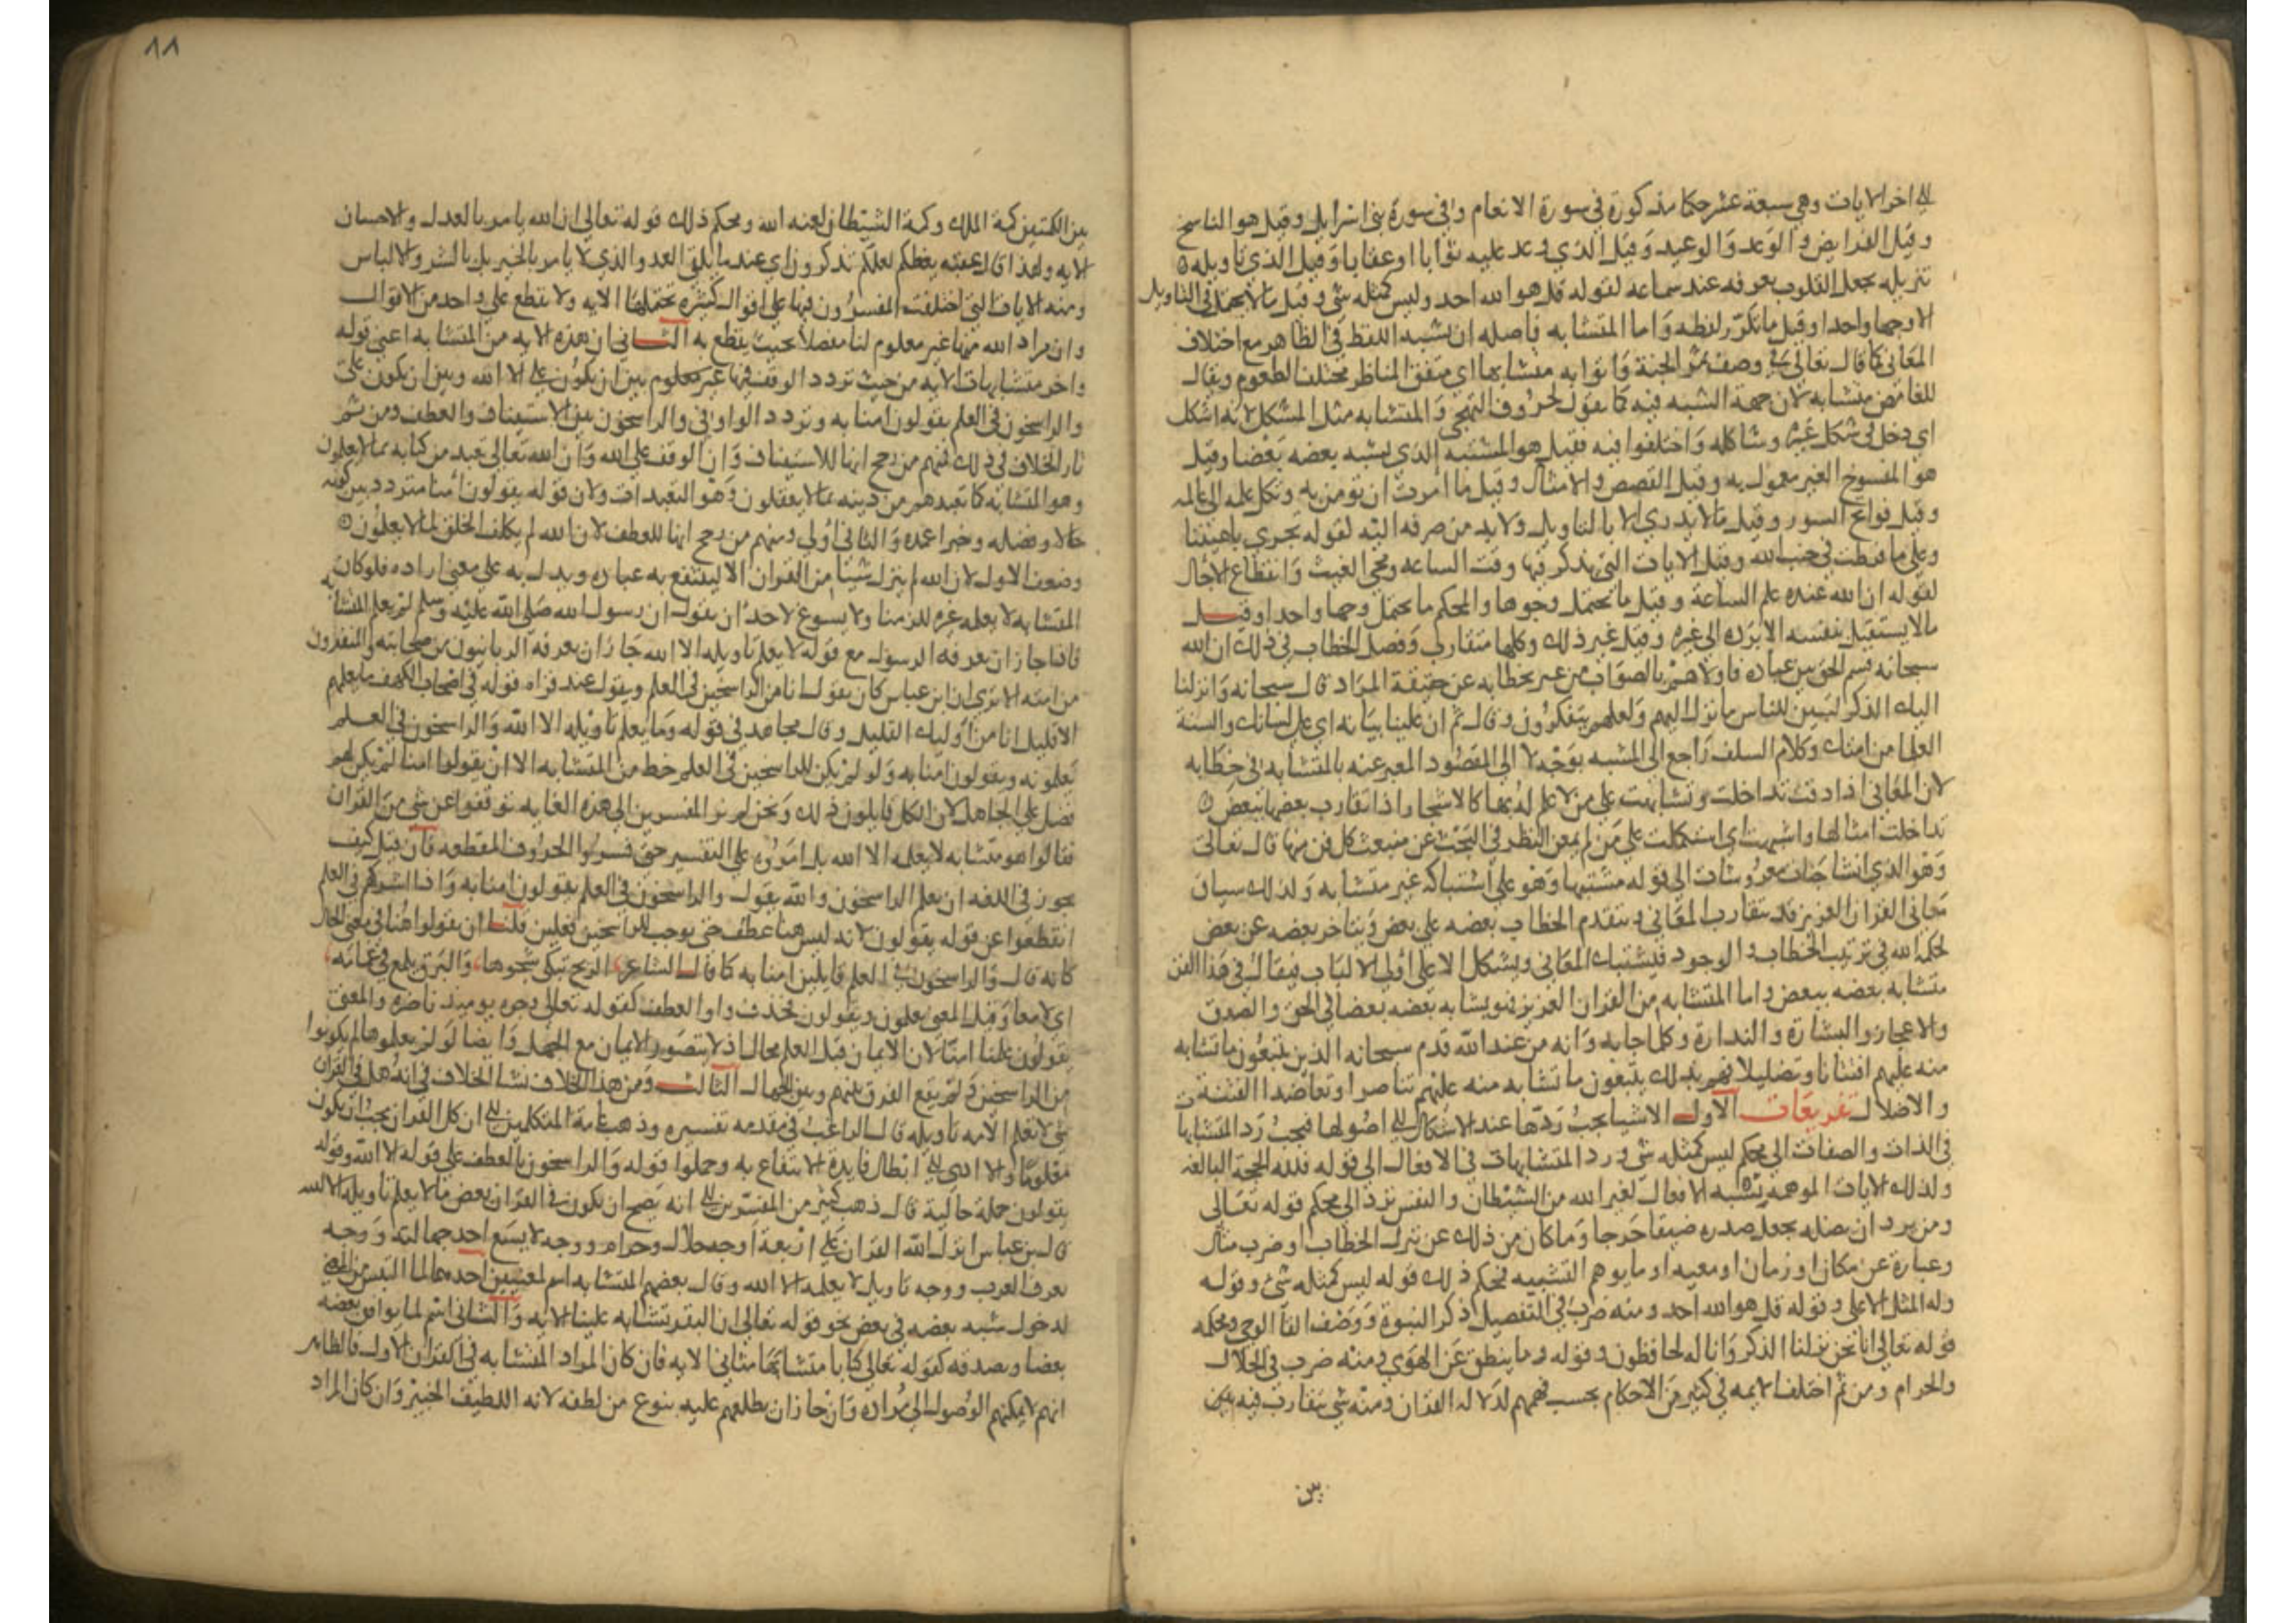 الي اخر الايات وهي سبعة عشر حكما مذكورة في سورة الانعام وفي سورة بني اسرايل وقيل هو الناسخ
وقيل الفرايض والوعد والوعيد وقيل الذي وعد عليه ثوابا او عقابا وقيل الذي تاويله
تنزيله بجعل القلوب تعرفه عند سماعه لقوله قل هو الله احد وليس كمثله شي وقيل مالا يحتمل في التاويل
الا وجها واحدا وقيل ما تكرر لفظه واما المتشابه فاصله ان يشبه اللفظ في الظاهر مع اختلاف
المعاني كما قال تعالي في وصف ثمر الجنة واتوا به متشابها اي متفق المناظر مختلف الطعوم ويقال
للغامض متشابه لان جهة الشبه فيه كما تقول لحروف التهجي والمتشابه مثل المشكل لانه اشكل
اي دخل في شكل غيره وشاكله واختلفوا فيه فقيل هو المشتبه الذي يشبه بعضه بعضا وقيل
هو المنسوخ الغير معمول به وقيل القصص والامثال وقيل ما امرت ان تومن به وتكل علمه الي عالمه
وقيل فواتح السور وقيل مالا يدري الا بالتاويل ولابد من صرفه اليه لقوله تجري باعيننا
وعلي ما فرطت في جنب الله وقيل الايات التي يذكر فيها وقت الساعه ومجي الغيث وانقطاع الاجال
لقوله ان الله عنده علم الساعة وقيل ما يحتمل وجوها والمحكم ما يحتمل وجها واحدا وقيل
مالا يستقيل بنفسه الا برده الي غيره وقيل غير ذلك وكلها متقارب وفصل الخطاب في ذلك ان الله
سبحانه قسم الحق بين عباده فاولاهم بالصواب من عبر بخطابه عن حقيقة المراد قال سبحانه وانزلنا
اليك الذكر لتبين للناس ما نزل اليهم ولعلهم يتفكرون وقال ثم ان علينا بيانه اي علي لسانك والسنة
العلما من امتك وكلام السلف راجع الي المشبه بوجه لا الي المقصود المعبر عنه بالمتشابه في خطابه
لان المعاني اذا دقت تداخلت وتشابهت علي من لا علم له بها كالاشجار اذا تقارب بعضها ببعض
تداخلت امثالها واشبهت اي اشكلت علي من لم يمعن النظر في البحث عن منبعث كل فن منها قال تعالي
وهو الذي انشا جنات معروشات الي قوله مشتبها وهو علي اشتباكه غير متشابه وكذلك سياق
معاني القران العزيز قد يتقارب المعاني ويتقدم الخطاب بعضه علي بعض ويتاخر بعضه عن بعض
لحكمه الله في ترتيب الخطاب والوجود فيشتبك المعاني ويشكل الا علي اولي الالباب فيقال في هذا الفن
متشابه بعضه ببعض واما المتشابه من القران العزيز فهو يشابه بعضه بعضا في الحق والصدق
والاعجاز والبشارة والنذارة وكل ما جا به وانه من عند الله قدم سبحانه الذين يتبعون ما تشابه
منه عليهم افتتانا وتضليلا فهم بذلك يتبعون ما تشابه منه عليهم تناصرا وتعاضدا للفتنة
والاضلال تفريعات الاول الاشيا يجب ردها عند الاشكال الي اصولها فيجب رد المتشابها
في الذات والصفات الي محكم ليس كمثله شي ورد المتشابهات في الافعال الي قوله فلله الحجة البالغه
وكذلك الايات الموهمه نسبة الافعال لغير الله من الشيطان والنفس ترد الي محكم قوله تعالي
ومن يرد ان يضله يجعل صدره ضيقا حرجا وما كان من ذلك عن تنزل الخطاب او ضرب مثال
وعبارة عن مكان او زمان او معيه او ما يوهم التشبيه فمحكم ذلك قوله ليس كمثله شي وقوله
وله المثل الاعلي وقوله قل هو الله احد ومنه ضرب في التفصيل ذكر النبوة ووصف القا الوحي ومحكمه
قوله تعالي انا نحن نزلنا الذكر وانا له لحافظون وقوله وما ينطق عن الهوي ومنه ضرب في الحلال
والحرام ومن ثم اختلف الايمه في كثير من الاحكام بحسب فهمهم لدلالة القران ومنه شي يتقارب فيه بين
بين
٨٨
بين اللمتين لمة الملك ولمة الشيطان لعنه الله ومحكم ذلك قوله تعالي ان الله يامر بالعدل والاحسان
الايه ولهذا قال عقبه يعظكم لعلكم تذكرون اي عند ما يلقي العدو الذي لا يامر بالخير بل بالشر والالباس
ومنه الايات التي اختلفت المفسرون فيها علي اقوال كثيره تحتملها الايه ولا يقطع علي واحد من الاقوال
وان مراد الله منها غير معلوم لنا مفصلا بحيث يقطع به الثاني ان هذه الايه من المتشابه اعني قوله
واخر متشابهات الايه من حيث تردد الوقف فيها غير معلوم بين ان يكون علي الا الله وبين ان يكون علي
والراسخون في العلم يقولون امنا به وتردد الواو في والراسخون بين الاستيناف والعطف ومن ثم
ثار الخلاف في ذلك فمنهم من رجح انها للاستيناف وان الوقف علي الله وان الله تعالي تعبد من كتابه بما لا يعلمون
وهو المتشابه كما تعبدهم من دينه بما لا يعقلون وهو التعبدات ولان قوله يقولون امنا متردد بين كونه
حالا وفضله وخبرا عمده والثاني اولي ومنهم من رجح انها للعطف لان الله لم يكلف الخلق بما لا يعلمون
وضعف الاول لان الله لم ينزل شيئا من القران الا لينتفع به عباده ويدل به علي معني اراده فلو كان
المتشابه لا يعلمه غيره للزمنا ولا يسوغ لاحد ان يقول ان رسول الله صلي الله عليه وسلم لم يعلم المتشابه
فاذا جاز ان يعرفه الرسول مع قوله لا يعلم تاويله الا الله جاز ان يعرفه الربانيون من صحابته والمفسرون
من امته الا تري ان ابن عباس كان يقول انا من الراسخين في العلم ويقول عند قراه قوله في اصحاب الكهف ما يعلمهم
الا قليل انا من اوليك القليل وقال مجاهد في قوله وما يعلم تاويله الا الله والراسخون في العلم
يعلمونه ويقولون امنا به ولو لم يكن للراسخين في العلم حظ من المتشابه الا ان يقولوا امنا لم يكن لهم
فضل علي الجاهل لان الكل قايلون ذلك ونحن لم نر المفسرين الي هذه الغايه توقفوا عن شي من القران
فقالوا هو متشابه لا يعلمه الا الله بل امروه علي التفسير حتي فسروا الحروف المقطعه فان قيل كيف
يجوز في اللغه ان يعلم الراسخون والله يقول والراسخون في العلم يقولون امنا به واذا اشركهم في العلم
انقطعوا عن قوله يقولون لانه ليس هنا عطف حتي يوجب للراسخين فعلين قلنا ان يقولوا هنا في معني الحال
كانه قال والراسخون في العلم قايلين امنا به كما قال الشاعر الريح تبكي شجوها والبرق يلمع في غمامه
اي لامعا وقيل المعني يعلمون ويقولون بحذف واو العطف كقوله تعالي وجوه يوميذ ناضره والمعني
يقولون علمنا امنا لان الايمان قبل العلم محال اذ لا يتصور الايمان مع الجهل وايضا لو لم يعلموها لم يكونوا
من الراسخين ولم يقع الفرق بينهم وبين الجهال الثالث ومن هذا الخلاف نشا الخلاف في انه هل في القران
شي لا تعلم الامه تاويله قال الراغب في مقدمه تفسيره وذهب عامة المتكلمين الي ان كل القران يجب ان يكون
معلوما والا ادي الي ابطال فايدة الانتفاع به وحملوا قوله والراسخون بالعطف علي قوله الا الله وقوله
يقولون جملة حالية قال ذهب كثير من المفسرين الي انه يصح ان يكون في القران بعض مالا يعلم تاويله الا الله
قال بن عباس انزل الله القران علي اربعة اوجه حلال وحرام ووجه لا يسع احد جهالته ووجه
يعرفه العرب ووجه تاويل لا يعلمه الا الله وقال بعضهم المتشابه اسم لمعنيين احدهما لما التبس من المعني
لدخول شبه بعضه في بعض نحو قوله تعالي ان البقر تشابه علينا الايه والثاني اسم لما يوافق بعضه
بعضا ويصدقه كقوله تعالي كتابا متشابها مثاني الايه فان كان المراد المتشابه في القران الاول فالظاهر
انهم لا يمكنهم الوصول الي مراده وان جاز ان يطلعهم عليه بنوع من لطفه لانه اللطيف الخبير وان كان المراد